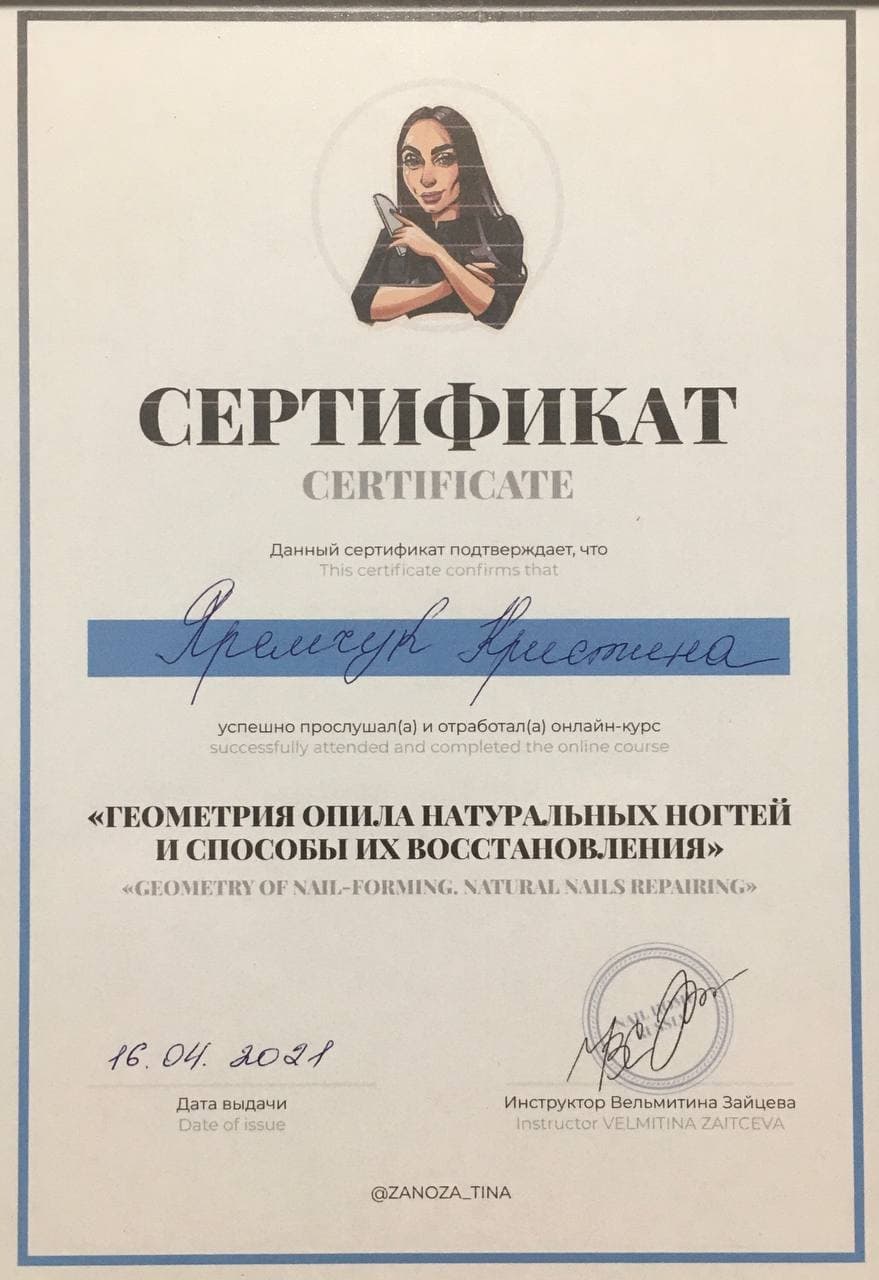 СЕРТИФИКАТ
CERTIFICATE
Данный сертификат подтверждает, что
This certificate confirms that
Яремчук Кристина
успешно прослушал(а) и отработал(а) онлайн-курс
successfully attended and completed the online course
«ГЕОМЕТРИЯ ОПИЛА НАТУРАЛЬНЫХ НОГТЕЙ
И СПОСОБЫ ИХ ВОССТАНОВЛЕНИЯ»
«GEOMETRY OF NAIL-FORMING. NATURAL NAILS REPAIRING»
16.04.2021
Дата выдачи
Date of issue
NAIL
Инструктор Вельмитина Зайцева
Instructor VELMITINA ZAITCEVA
@ZANOZA_TINA